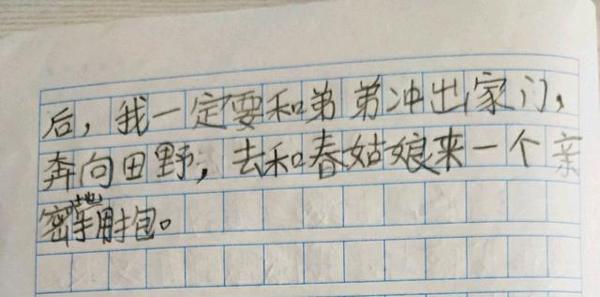 后，我一定要和弟弟冲出家门，
奔向田野，去和春姑娘来一个亲
密地拥抱。